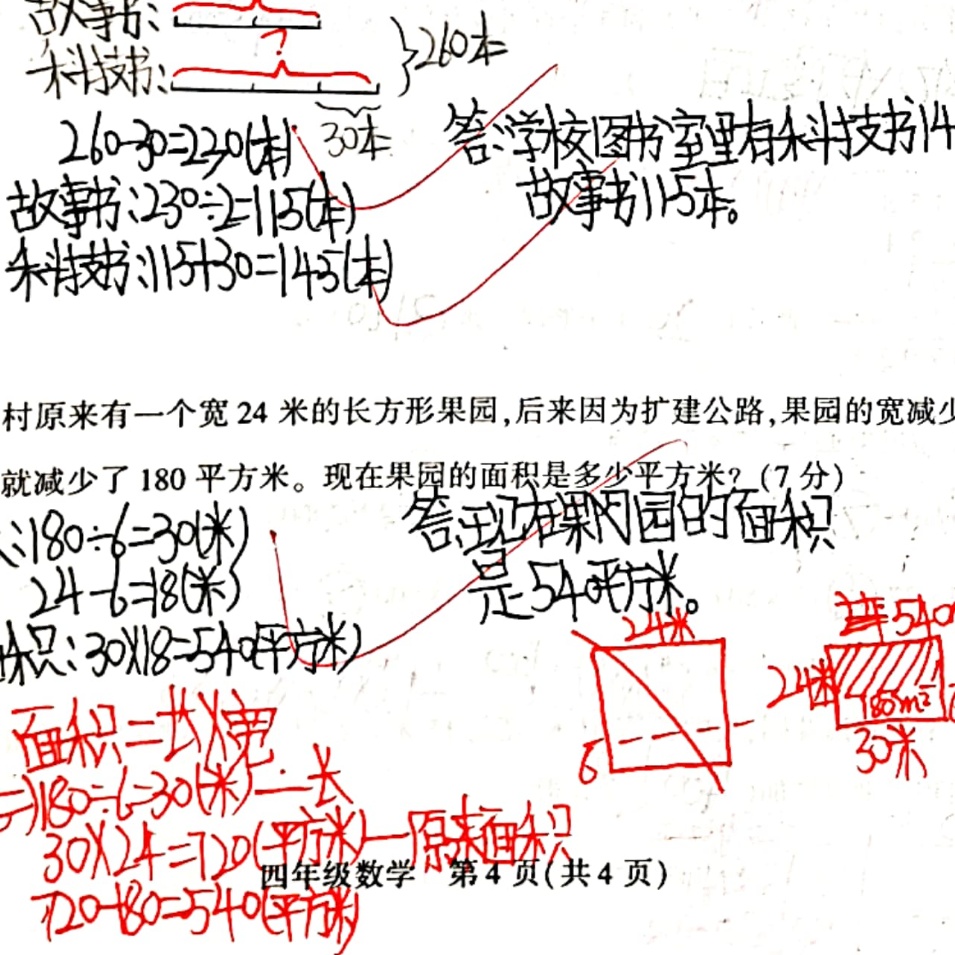 故事书:
?
科技书:
}260本
30本
260-30=230(本)
故事书:230÷2=115(本)
科技书:115+30=145(本)
答:学校图书室里有科技书14
故事书115本。
村原来有一个宽 24 米的长方形果园,后来因为扩建公路,果园的宽减少
就减少了 180 平方米。现在果园的面积是多少平方米?(7 分)
:180÷6=30(米)
24-6=18(米)
积:30×18=540(平方米)
答:现在果园的面积
是540平方米。
24米
6
540
24米
180m²
30米
面积=长×宽
180÷6=30(米)—长
30×24=720(平方米)—原来面积
720-180=540(平方米)
四年级数学 第 4 页(共 4 页)